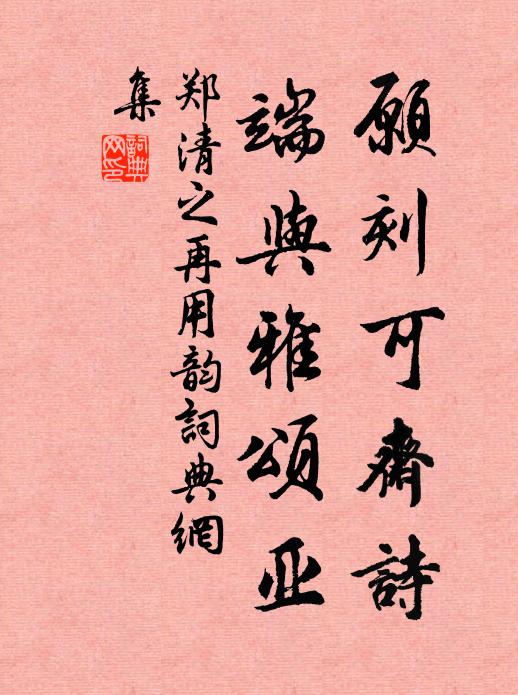 願刻可齋詩
端與雅頌亚
郑清之再用韵詞典網
集
詞典網印